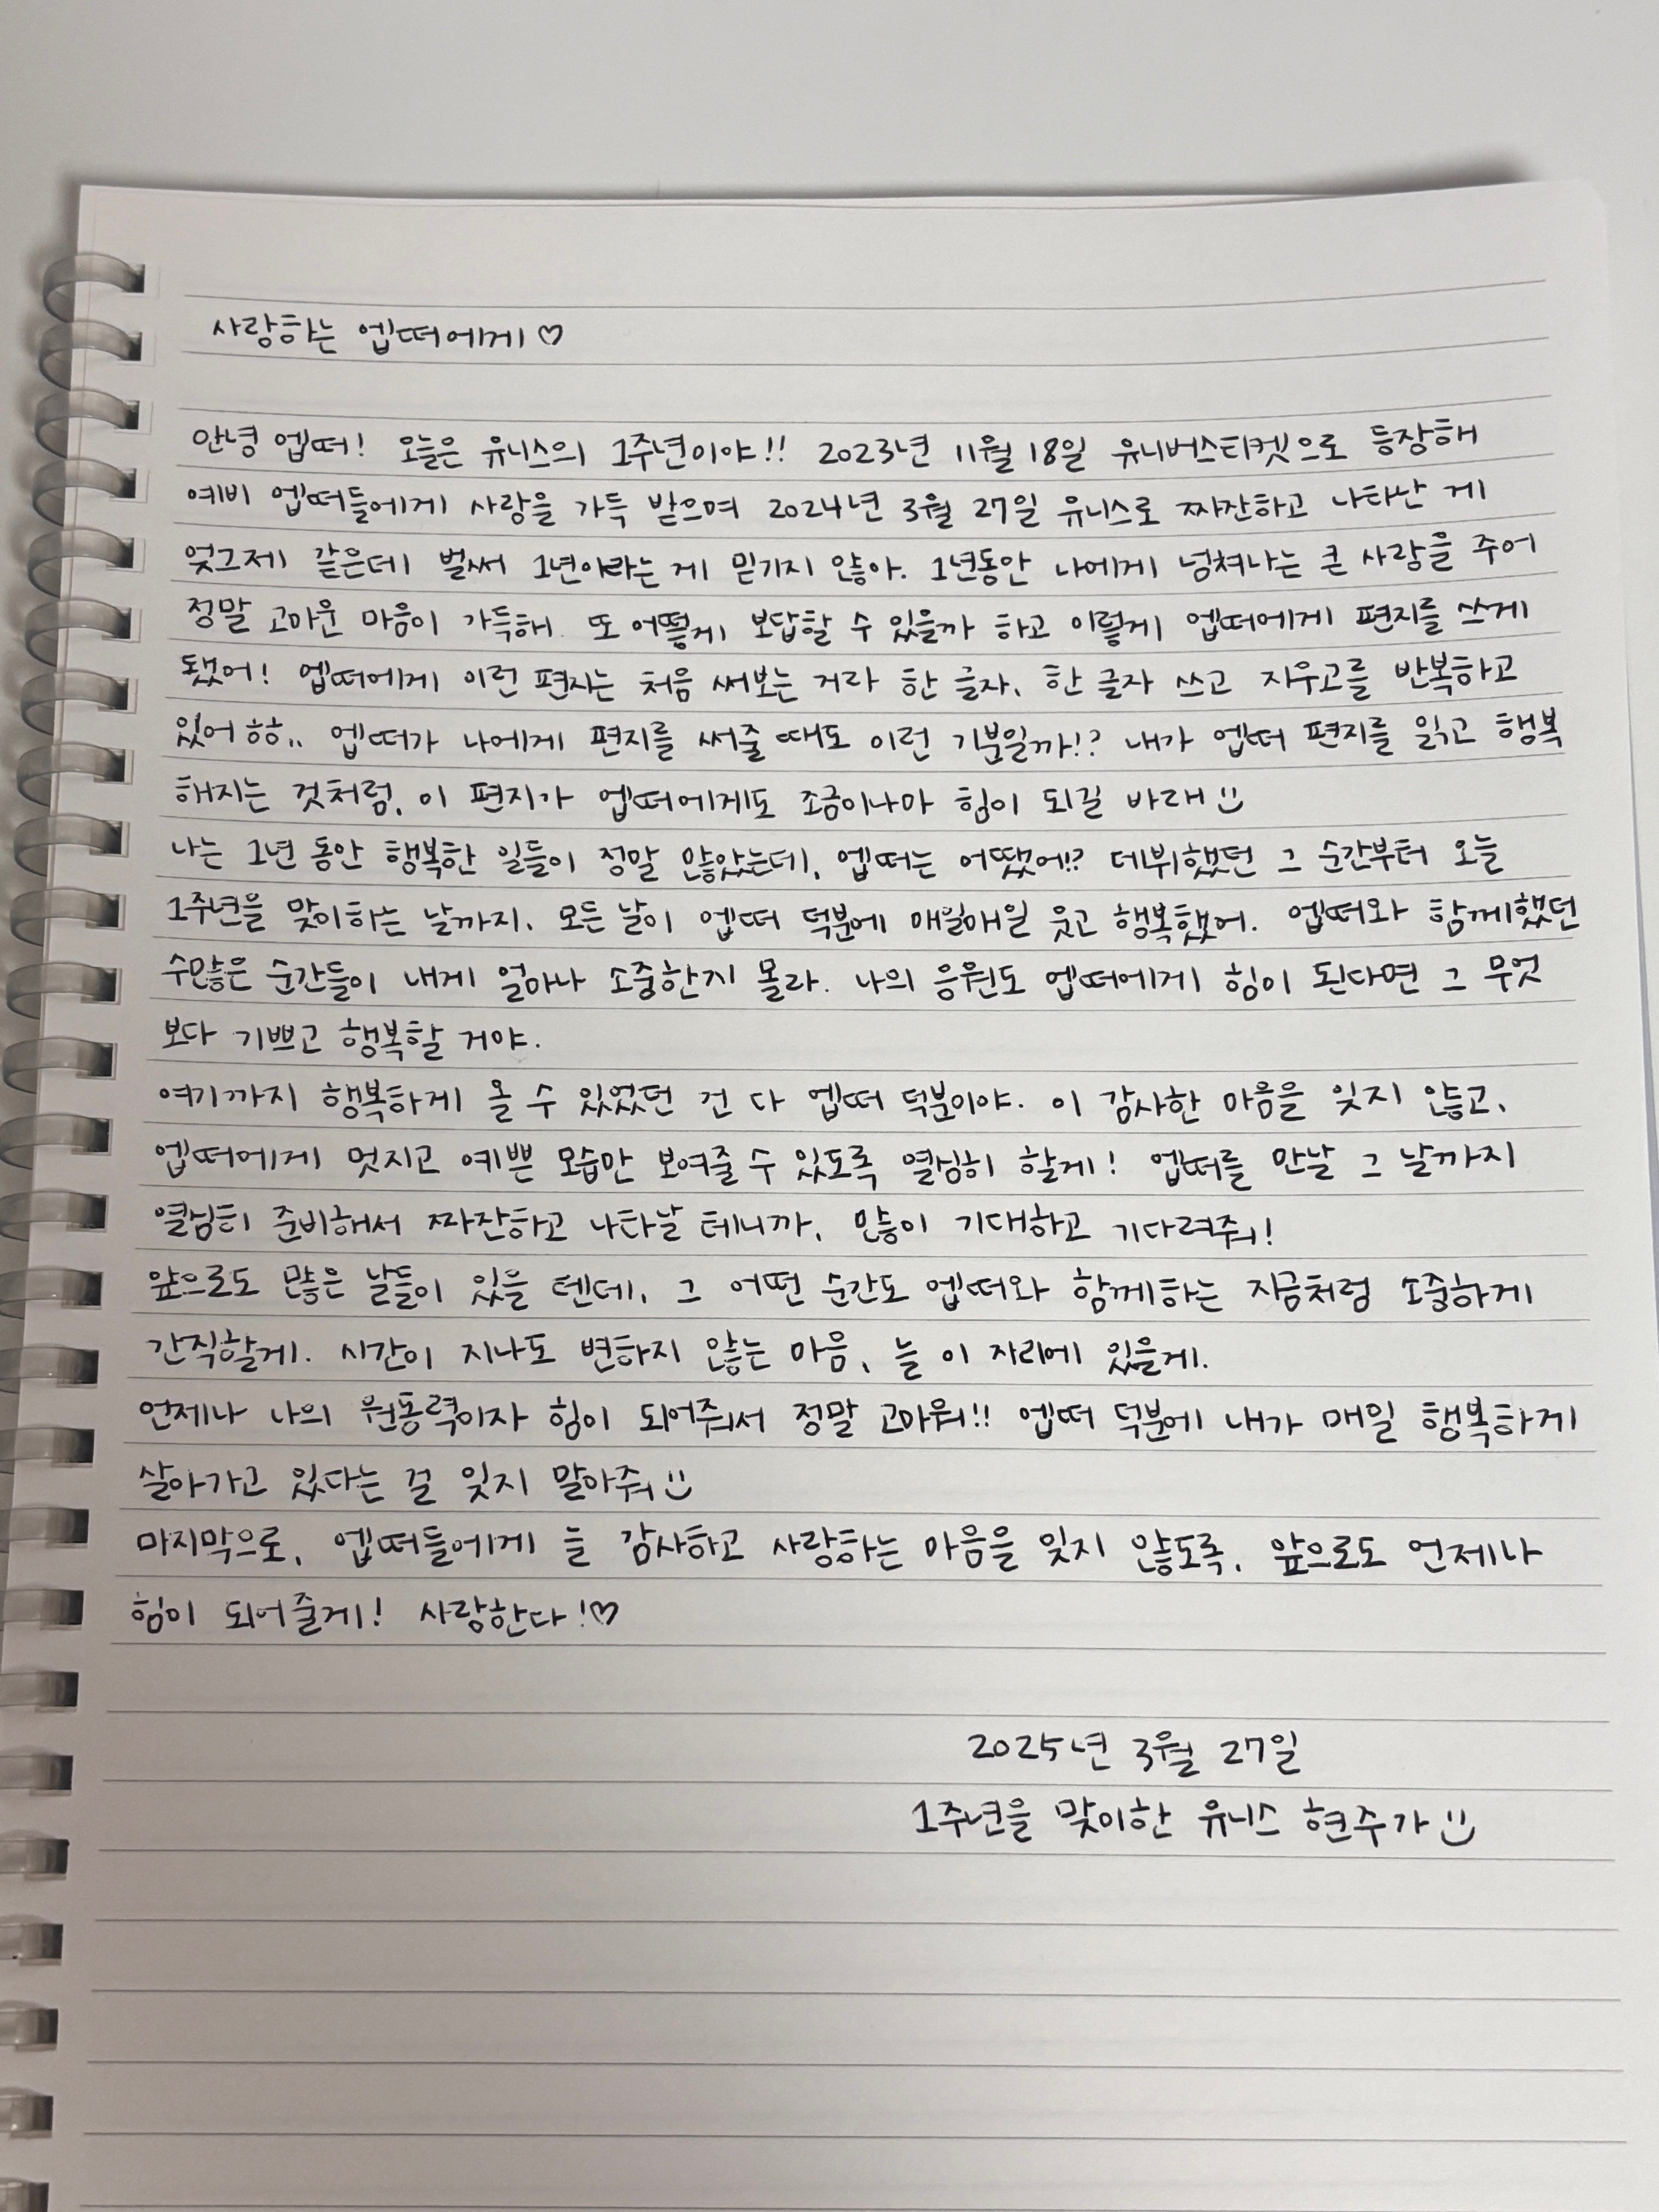 사랑하는 엡떠에게♡
안녕 엡떠! 오늘은 유니스의 1주년이야!! 2023년 11월 18일 유니버스티켓으로 등장해
예비 엡떠들에게 사랑을 가득 받으며 2024년 3월 27일 유니스로 짜잔하고 나타난 게
엊그제 같은데 벌써 1년이라는 게 믿기지 않아. 1년동안 나에게 넘쳐나는 큰 사랑을 주어
정말 고마운 마음이 가득해. 또 어떻게 보답할 수 있을까 하고 이렇게 엡떠에게 편지를 쓰게
됐어! 엡떠에게 이런 편지는 처음 써보는 거라 한 글자, 한 글자 쓰고 지우고를 반복하고
있어 하하.. 엡떠가 나에게 편지를 써줄 때도 이런 기분일까!? 내가 엡떠 편지를 읽고 행복
해지는 것처럼, 이 편지가 엡떠에게도 조금이나마 힘이 되길 바래 :)
나는 1년 동안 행복한 일들이 정말 많았는데, 엡떠는 어땠어!? 데뷔했던 그 순간부터 오늘
1주년을 맞이하는 날까지, 모든 날이 엡떠 덕분에 매일매일 웃고 행복했어. 엡떠와 함께했던
수많은 순간들이 내게 얼마나 소중한지 몰라. 나의 응원도 엡떠에게 힘이 된다면 그 무엇
보다 기쁘고 행복할 거야.
여기까지 행복하게 올 수 있었던 건 다 엡떠 덕분이야. 이 감사한 마음을 잊지 않고,
엡떠에게 멋지고 예쁜 모습만 보여줄 수 있도록 열심히 할게! 엡떠를 만날 그 날까지
열심히 준비해서 짜잔하고 나타날 테니까, 많이 기대하고 기다려줘!
앞으로도 많은 날들이 있을 텐데, 그 어떤 순간도 엡떠와 함께하는 지금처럼 소중하게
간직할게. 시간이 지나도 변하지 않는 마음, 늘 이 자리에 있을게.
언제나 나의 원동력이자 힘이 되어줘서 정말 고마워!! 엡떠 덕분에 내가 매일 행복하게
살아가고 있다는 걸 잊지 말아줘 :)
마지막으로, 엡떠들에게 늘 감사하고 사랑하는 마음을 잊지 않도록, 앞으로도 언제나
힘이 되어줄게! 사랑한다!♡
2025년 3월 27일
1주년을 맞이한 유니스 현주가 :)